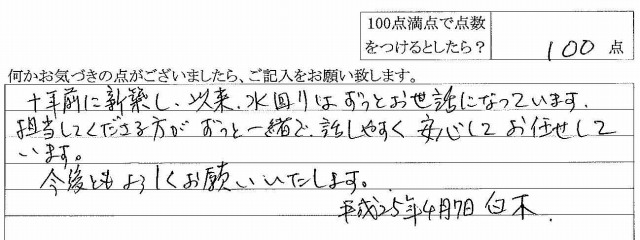 100点満点で点数
をつけるとしたら？ 100 点
何かお気づきの点がございましたら、ご記入をお願い致します。
十年前に新築し、以来、水回りはずっとお世話になっています。
担当してくださる方がずっと一緒で、話しやすく安心してお任せして
います。
今後ともよろしくお願いいたします。
平成25年4月7日 白木